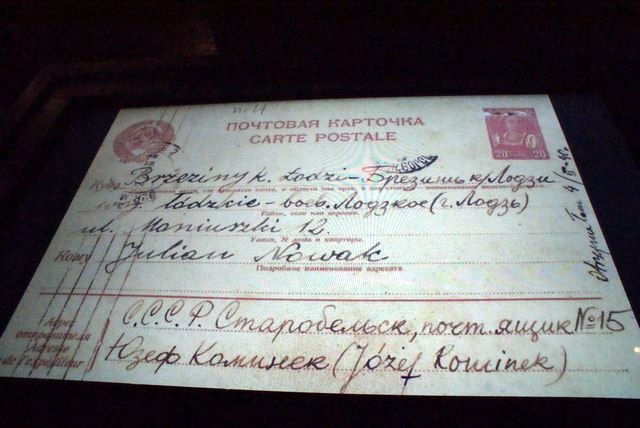 ПОЧТОВАЯ КАРТОЧКА
CARTE POSTALE
20 20
Куда Brzeziny k. Łodzi - Брезины к/Лодзи
łódzkie - воев. Лодзкое (г. Лодзь)
Район, село или деревня.
ul. Moniuszki 12.
Улица, № дома и квартиры.
Кому Julian Nowak
Подробное наименование адресата
Адрес отправителя
Adresse de l'expéditeur
С.С.С.Р. Старобельск, почт. ящик №15
Юзеф Коминек (Józef Kominek)